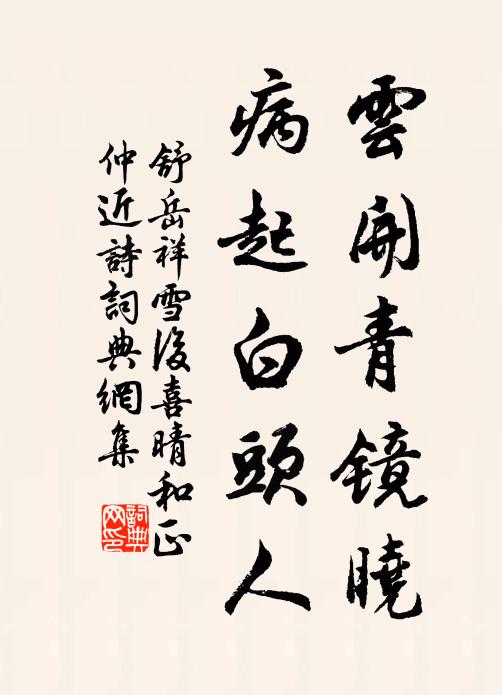 雲開青鏡曉
病起白頭人
舒岳祥雪後喜晴和正
仲近詩詞典網集
詞典网印